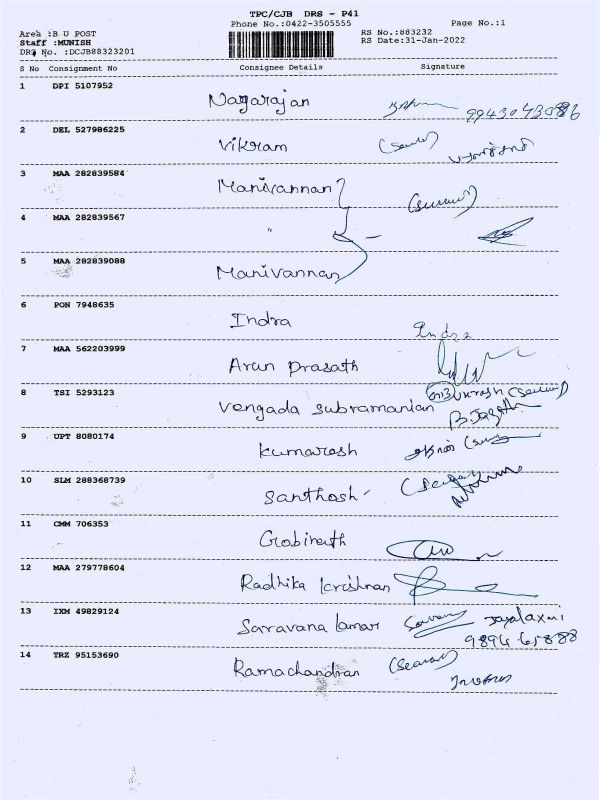 TPC/CJB DRS - P41
Phone No.:0422-3505555
Page No.:1
Area :B U POST
Staff :MUNISH
DRS No. :DCJB88323201
RS No.:883232
RS Date:31-Jan-2022
S No Consignment No Consignee Details Signature
1 DPI 5107952 Nagarajan
2 DEL 527986225 Vikram
3 MAA 282839584 Manivannan
4 MAA 282839567 "
5 MAA 282839088 Manivannan
6 PON 7948635 Indra Indra
7 MAA 562203999 Arun Prasath
8 TSI 5293123 Vengada subramanian
9 UPT 8080174 Kumaresh
10 SLM 288368739 Santhosh
11 CMM 706353 Gobinath
12 MAA 279778604 Radhika krishnan
13 IXM 49829124 Saravana kumar Jayalaxmi
14 TRZ 95153690 Ramachandran